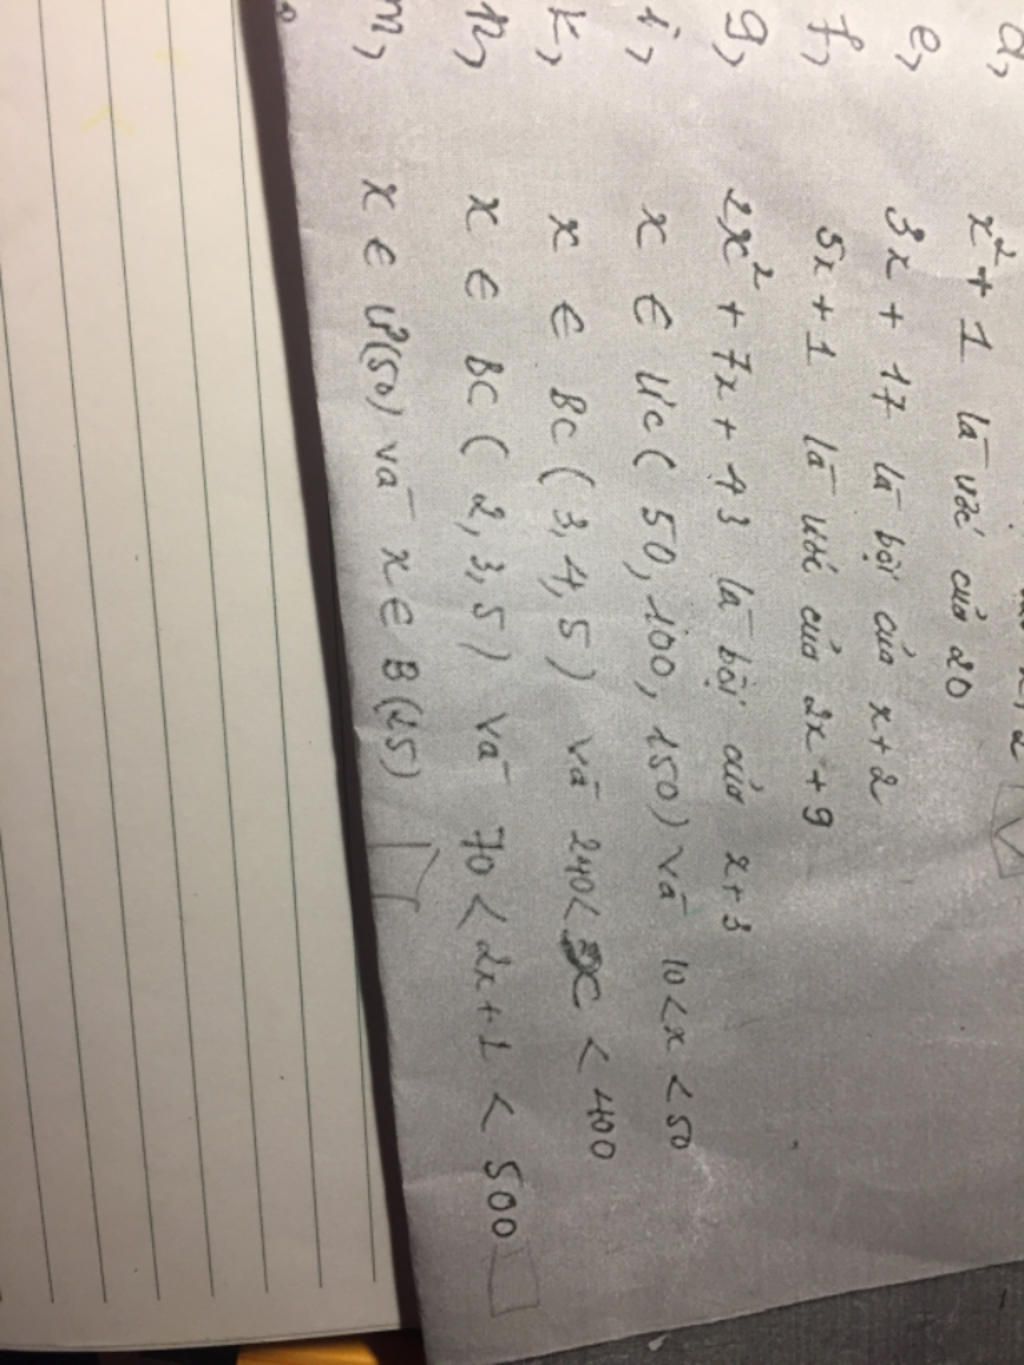 d, x² + 1 là ước của 20
e, 3x + 17 là bội của x+2
f, 5x+1 là ước của 2x+9
g, 2x² + 7x + 43 là bội của x+3
i, x ∈ ƯC ( 50, 100, 150) và 10 < x < 50
k, x ∈ BC ( 3, 4, 5) và 240 < x < 400
n, x ∈ BC ( 2, 3, 5) và 70 < 2x+1 < 500
m, x ∈ Ư(50) và x ∈ B (25)